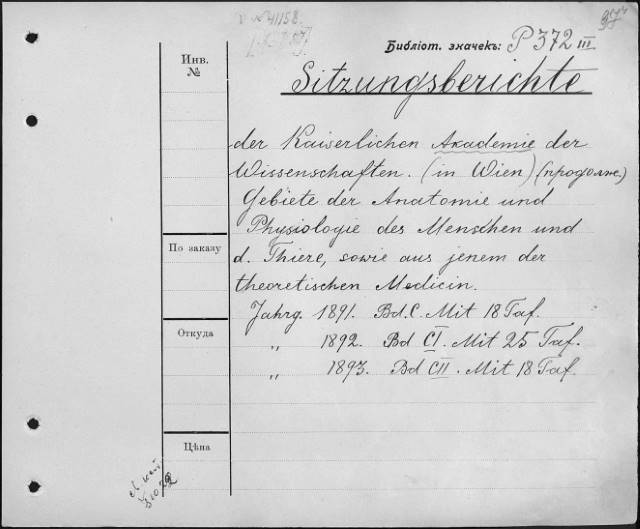 № 41158.
Библіот. значекъ: P 372 III
Инв.
№
Sitzungsberichte
der Kaiserlichen Akademie der
Wissenschaften. (in Wien) (продолж.)
Gebiete der Anatomie und
Physiologie des Menschen und
По заказу
d. Thiere, sowie aus jenem der
theoretischen Medicin.
Jahrg. 1891. Bd. C. Mit 18 Taf.
Откуда
„ 1892. Bd CI. Mit 25 Taf.
„ 1893. Bd CII. Mit 18 Taf.
Цѣна